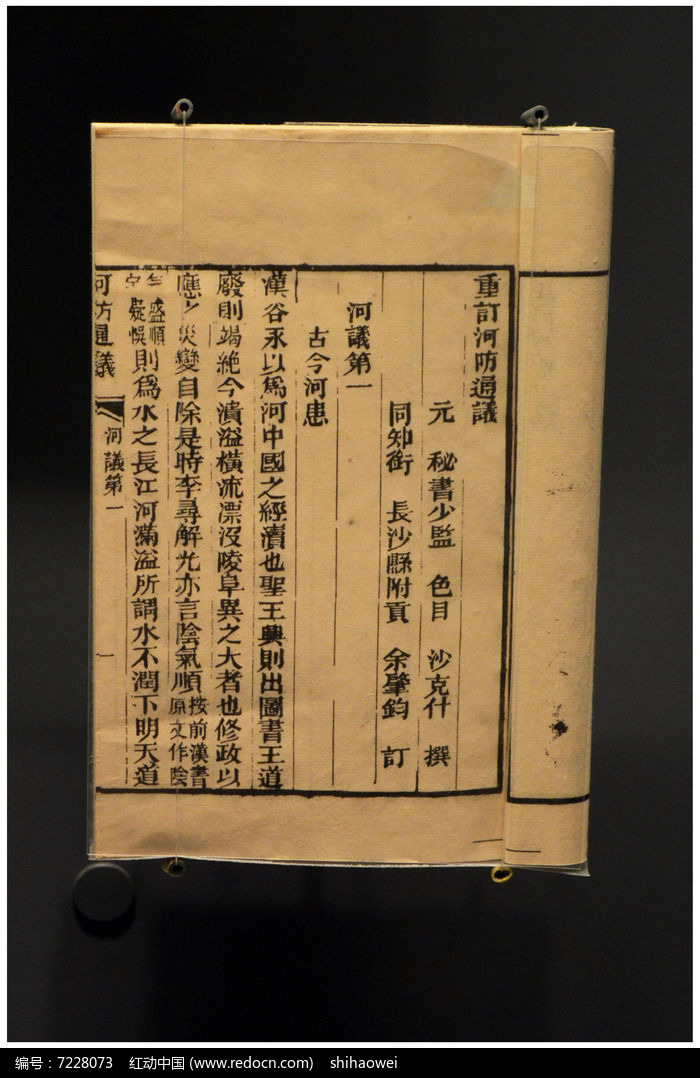 重訂河防通議
元　秘書少監　色目　沙克什　撰
同知銜　長沙縣附貢　余肇鈞　訂
河議第一
古今河患
漢谷永以爲河中國之經瀆也聖王興則出圖書王道
廢則竭絕今潰溢橫流漂沒陵阜異之大者也修政以
應之災變自除是時李尋解光亦言陰氣順按前漢書原文作陰
氣盛順字疑悞則爲水之長江河滿溢所謂水不潤下明天道
河防通議　河議第一　一
编号：7228073 红动中国 (www.redocn.com) shihaowei